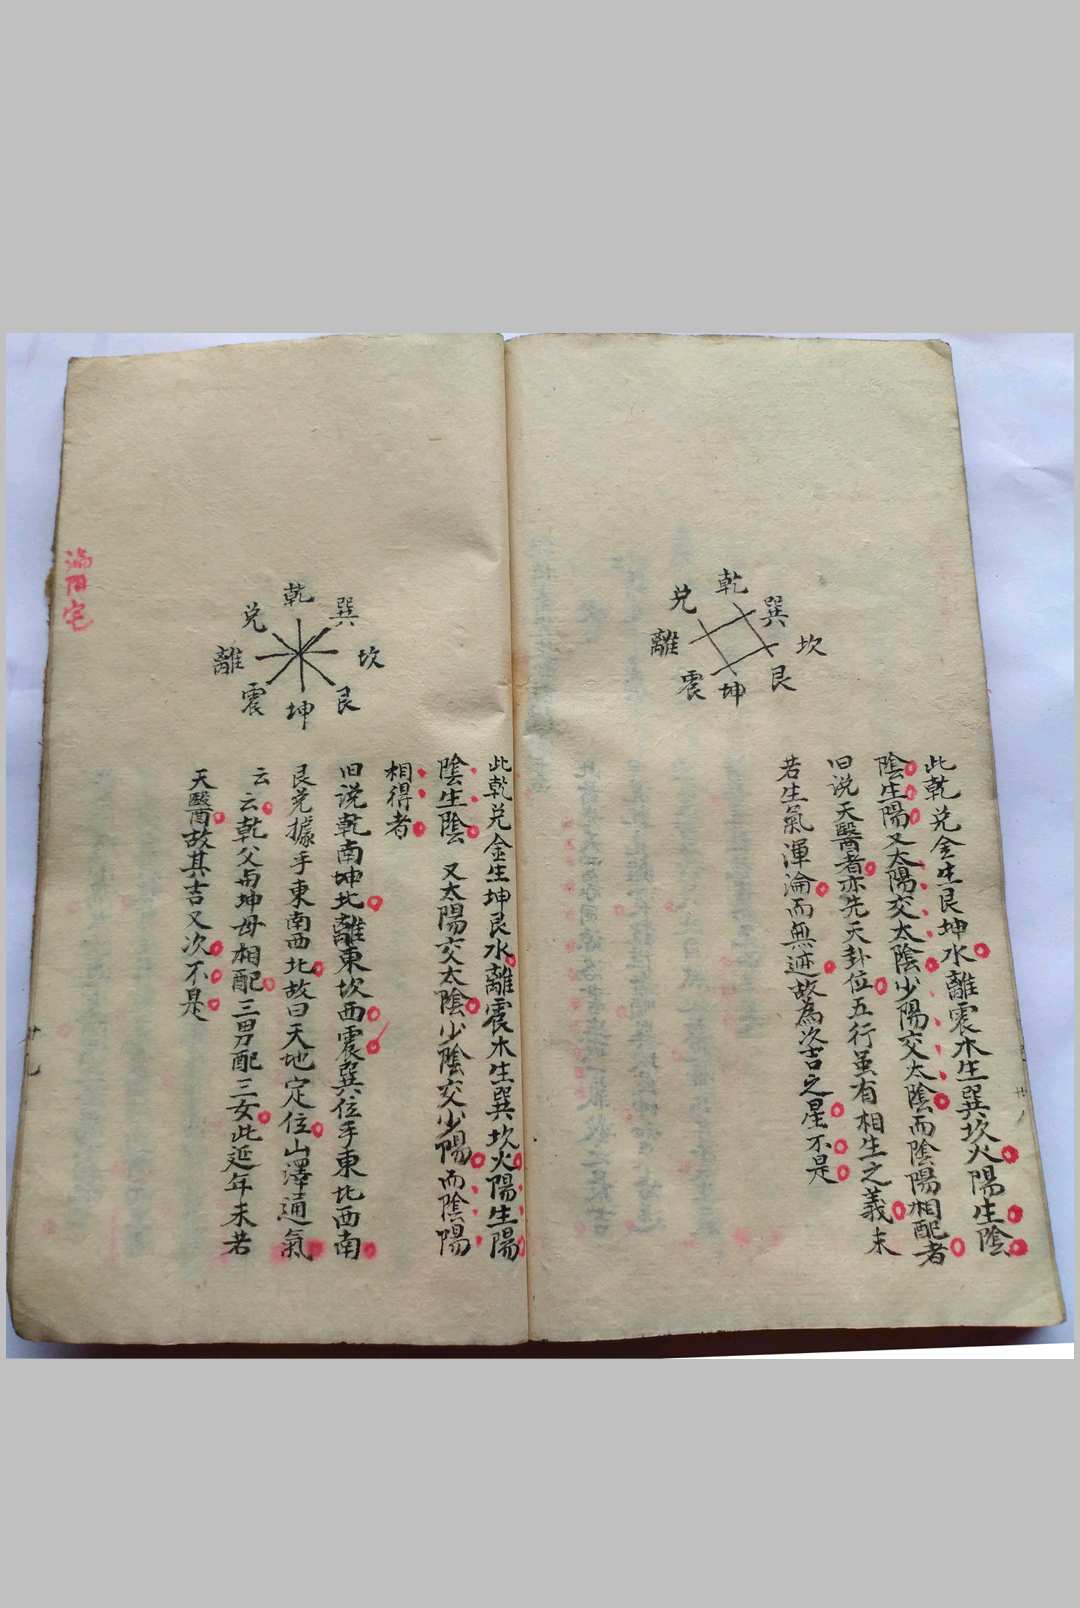 乾
兌
巽
離
坎
震
坤
艮
此乾兌金生艮坤水離震木生巽坎火陽生陰
陰生陽又太陽交太陰少陽交太陰而陰陽相配者
旧说天醫者亦先天卦位五行虽有相生之義未
若生氣渾淪而無迹故為次吉之星不是
廿八
乾
兌
巽
離
坎
震
坤
艮
此乾兌金生坤艮水離震木生巽坎火陽生陽
陰生陰 又太陽交太陰少陰交少陽而陰陽
相得者
旧说乾南坤北離東坎西震巽位乎東北西南
艮兌據乎東南西北故曰天地定位山澤通氣
云云乾父与坤母相配三男配三女此延年未若
天醫故其吉又次不是
廿九
陽宅